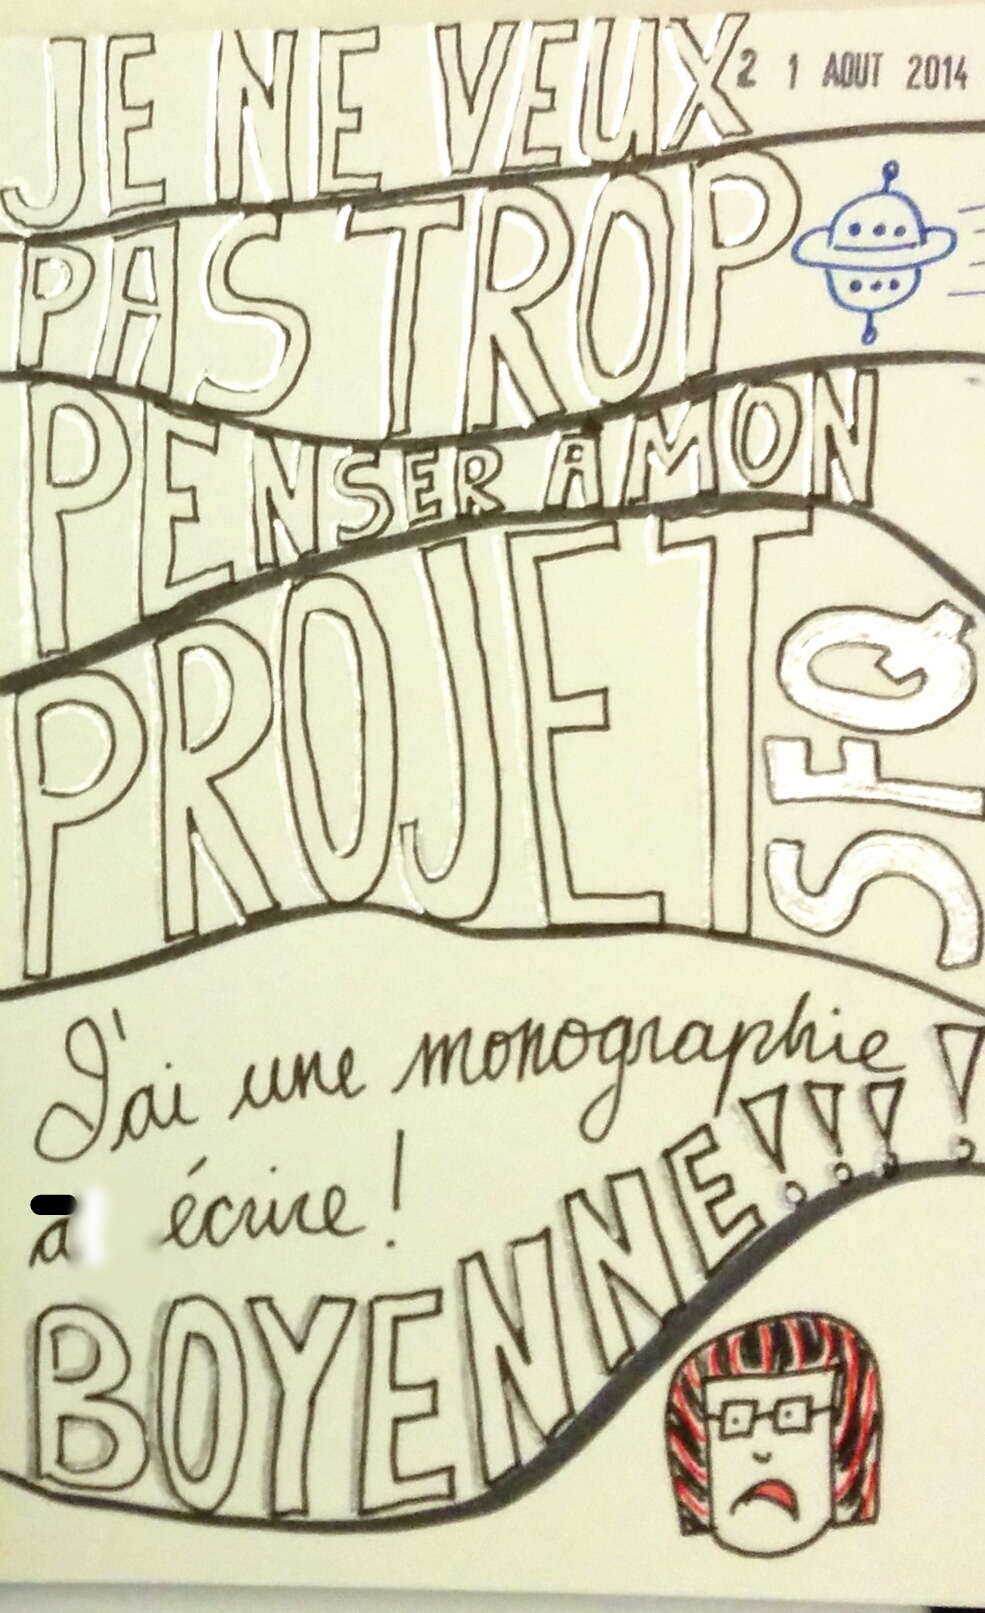 JE NE VEUX
21 AOUT 2014
PAS TROP
PENSER À MON
PROJET
SFQ
J'ai une monographie
à écrire!
BOYENNE!!!!